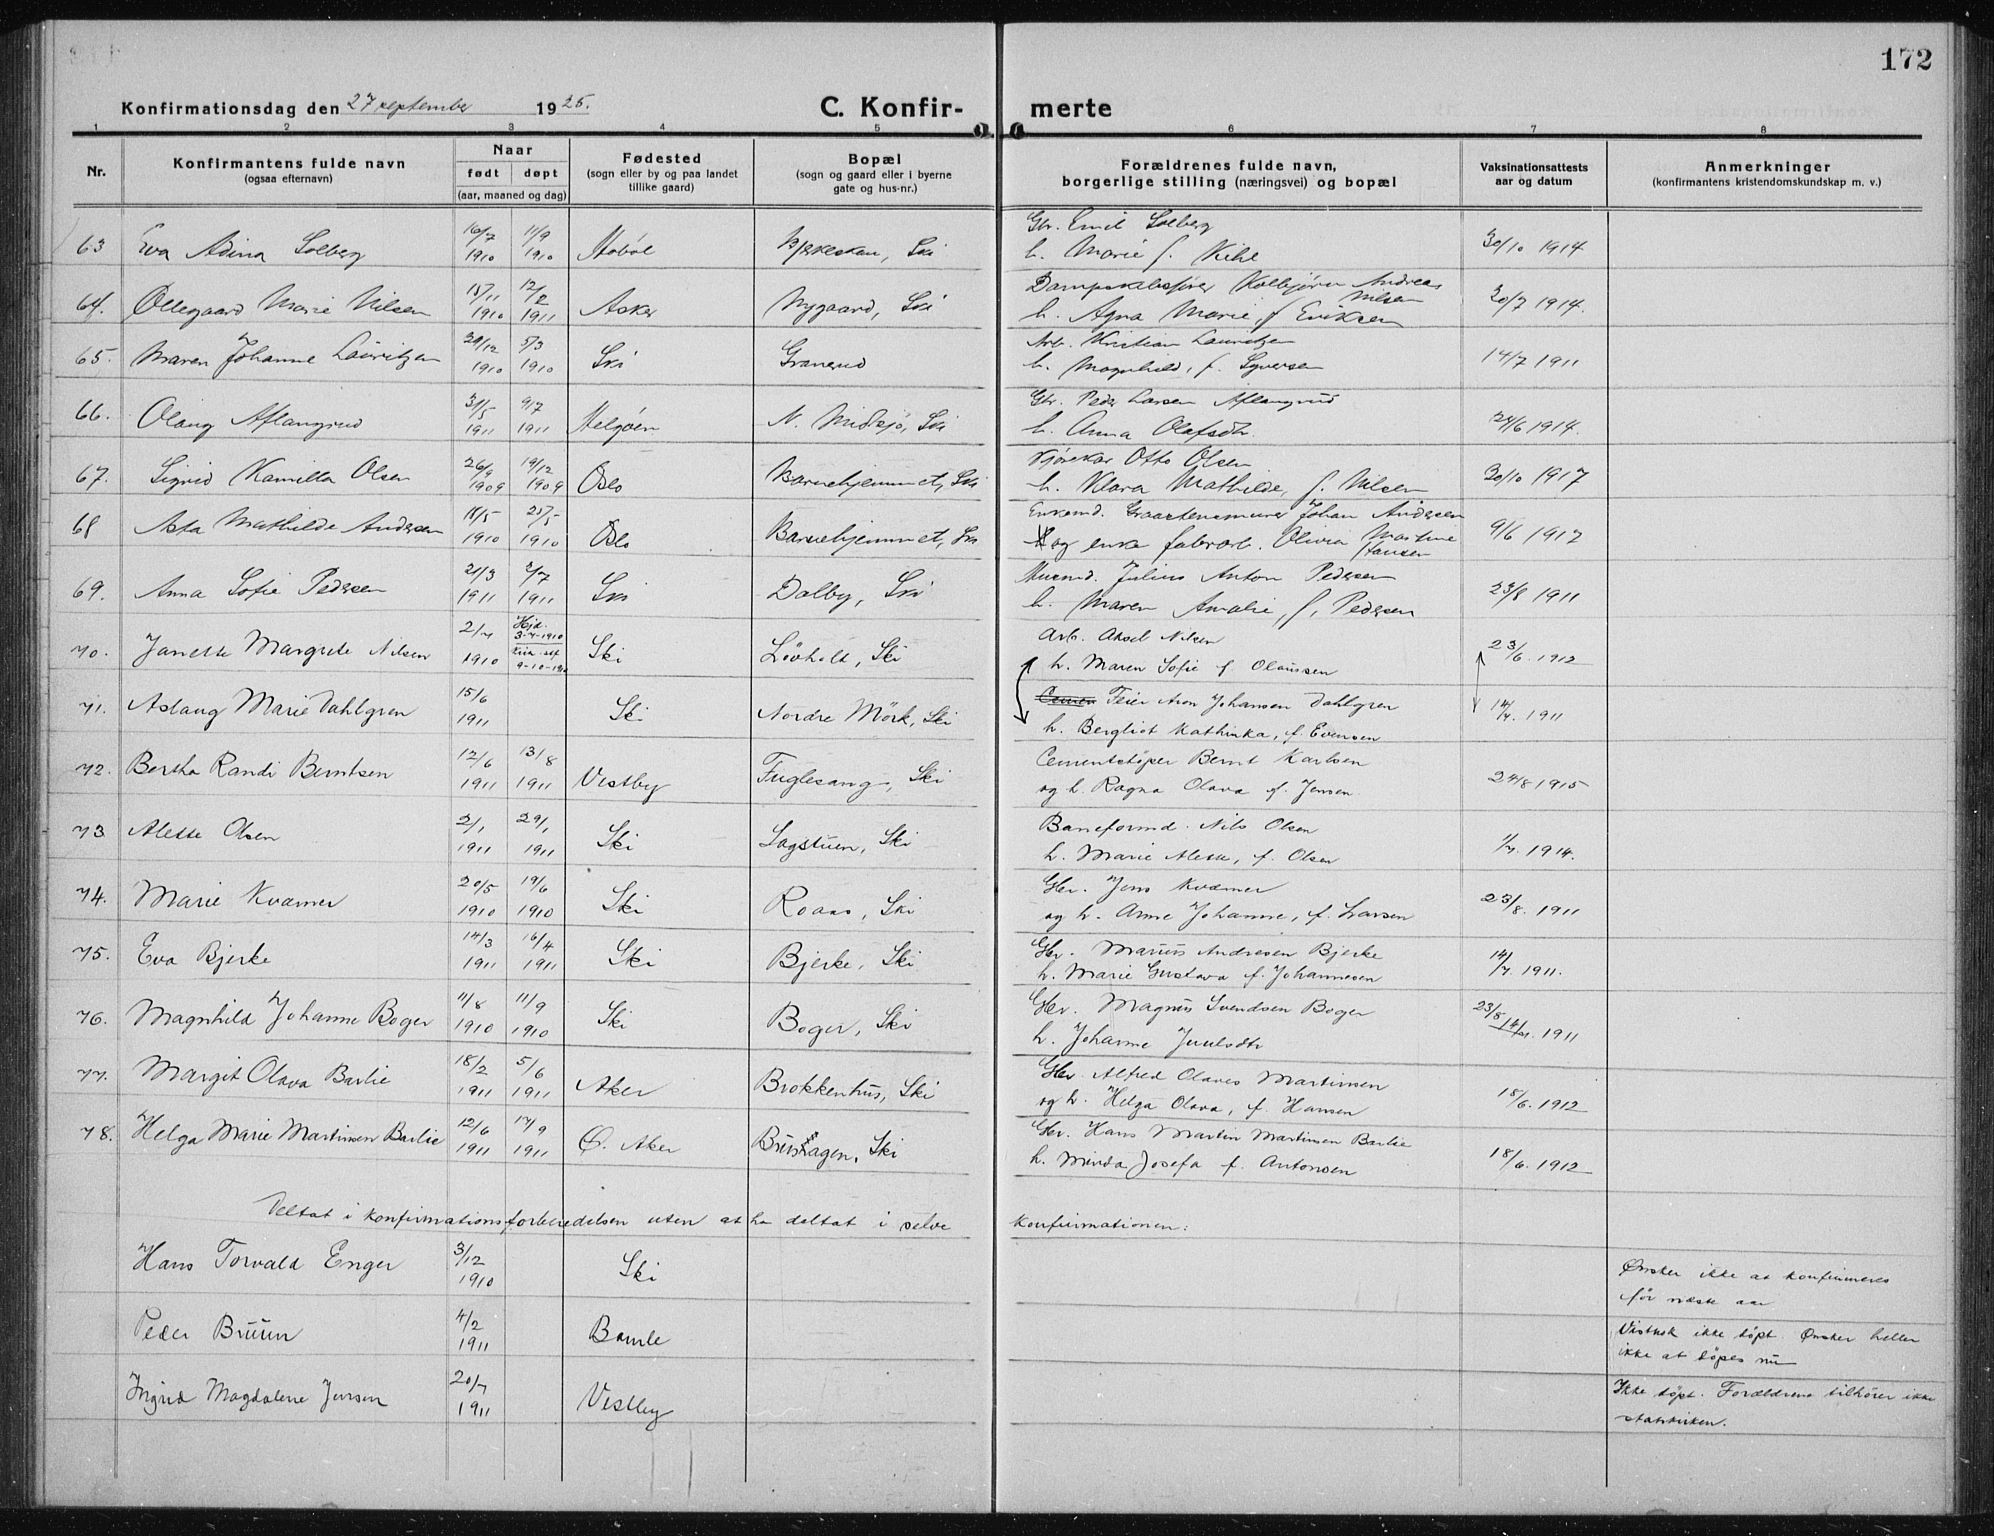 172
Konfirmationsdag den 27 september 1925. C. Konfir- merte
1 2 3 4 5 6 7 8
Nr. Konfirmantens fulde navn (ogsaa efternavn) Naar født døpt (aar, maaned og dag) Fødested (sogn eller by og paa landet tillike gaard) Bopæl (sogn og gaard eller i byerne gate og hus-nr.) Forældrenes fulde navn, borgerlige stilling (næringsvei) og bopæl Vaksinationsattests aar og datum Anmerkninger (konfirmantens kristendomskundskap m. v.)
63 Eva Adina Solberg 16/7 1910 11/9 1910 Hobøl Ski Gbr. Emil Solberg
h. Marie f. Kihl 30/10 1914
64. Ollegaard Marie Nilsen 15/11 1910 12/2 1911 Asker Nygaard, Ski Kolbjørn Andreas Nilsen
h. Agna Marie, f Eriksen 30/7 1914.
65. Maren Johanne Lauritzen 29/12 1910 5/3 1910 Ski Granerud Arb. Kristian Lauritzen
h. Magnhild, f. Syversen 14/7 1911
66. Olaug Aflangrud 31/5 1911 9/7 1911 Helgøen N. Midsjø, Ski Gbr. Peder Larsen Aflangrud
h. Anna Olafsdtr. 24/6 1914.
67. Sigrid Kamilla Olsen 26/9 1909 19/12 1909 Oslo Barnehjemmet, Ski Kjørekar Otto Olsen
h. Klara Mathilde, f. Nilsen 30/10 1917
68 Asta Mathilde Andersen 18/5 1910 25/5 1910 Oslo Barnehjemmet, Ski Enkemd. Johan Andersen
og enke fabrarb. Olivia Martine Hansen 9/6 1917
69. Anna Sofie Pedersen 21/3 1911 2/7 1911 Ski Dalby, Ski Murmd. Julius Anton Pedersen
h. Maren Amalie, f. Pedersen 23/8 1911
70. Janette Margrete Nilsen 2/7 1910 Hjd. 3-7-1910 9-10-1910 Ski Løvholt, Ski Arb. Aksel Nilsen
h. Maren Sofie f. Olaussen 23/6. 1912
71. Aslaug Marie Dahlgren 15/6 1911 Ski Nordre Mörk, Ski Feier Aron Johansen Dahlgren
h. Bergliot Kathinka, f. Evensen 14/7. 1911
72. Bertha Randi Berntsen 12/6 1911 13/8 1911 Vestby Fuglesang, Ski Cementstøper Bernt Karlsen
og h. Ragna Olava f. Jensen. 24/8 1915
73 Alette Olsen 2/1 1911 29/1 1911 Ski Sagstuen, Ski Baneformd. Nils Olsen
h. Marie Alette, f. Olsen 1/7. 1914.
74. Marie Kværner 20/5 1910 19/6 1910 Ski Roaas, Ski Gbr. Jens Kværner
og h. Anne Johanne, f. Larsen 23/8. 1911
75. Eva Bjerke 14/3 1911 16/4 1911 Ski Bjerke, Ski Gbr. Marius Andresen Bjerke
h. Marie Gustava f. Johannesen 14/7. 1911.
76. Magnhild Johanne Boger 11/8 1910 11/9 1910 Ski Boger, Ski Gbr. Magnus Svendsen Boger
h. Johanne Juulsdtr 23/8 14/7. 1911
77. Margit Olava Barlie 18/2 1911 5/6 1911 Aker Brokkenhus, Ski Gbr. Alfred Olaves Martinsen
og h. Helga Olava, f. Hansen 18/6. 1912
78. Helga Marie Martinsen Barlie 12/6 1911 17/9 1911 Ø. Aker Ski Gbr. Hans Martin Martinsen Barlie
h. Minda Josefa f. Antonsen 18/6. 1912
Deltat i konfirmationsforberedelsen uten at ha deltat i selve konfirmationen:
Hans Torvald Enger 3/12 1910 Ski Ønsker ikke at konfirmeres
før næste aar
Peder Bruun 4/2 1911 Bamle ikke døpt. Ønsker heller
ikke at døpes nu
Ingrid Magdalene Jensen 20/7 1911 Vestby Ikke døpt. Forældrene tilhører ikke
statskirken.